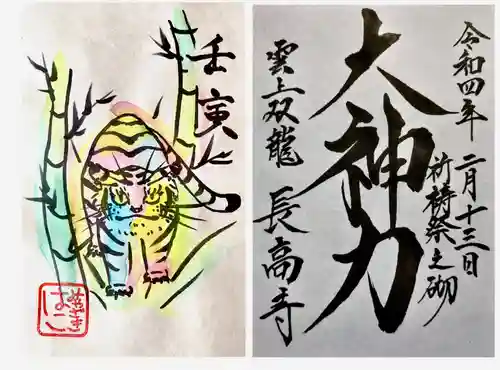 壬寅
令和四年 二月十三日
祈祷祭之砌
大神力
雲上双龍 長高寺